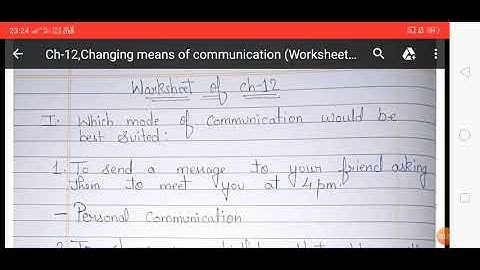 23:24
Ch-12,Changing means of communication (Worksheet...
Worksheet of ch-12
I. Which mode of Communication would be
best suited:
1. To send a message to your friend asking
them to meet you at 4 pm.
- Personal Communication